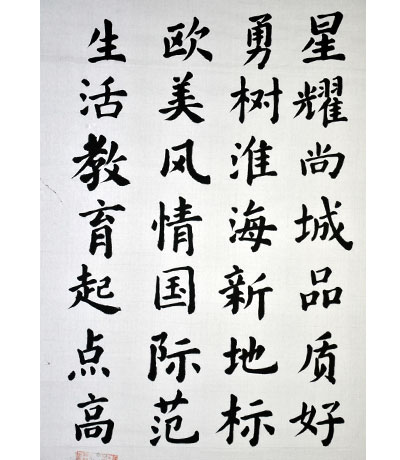 星耀尚城品质好
勇树淮海新地标
欧美风情国际范
生活教育起点高